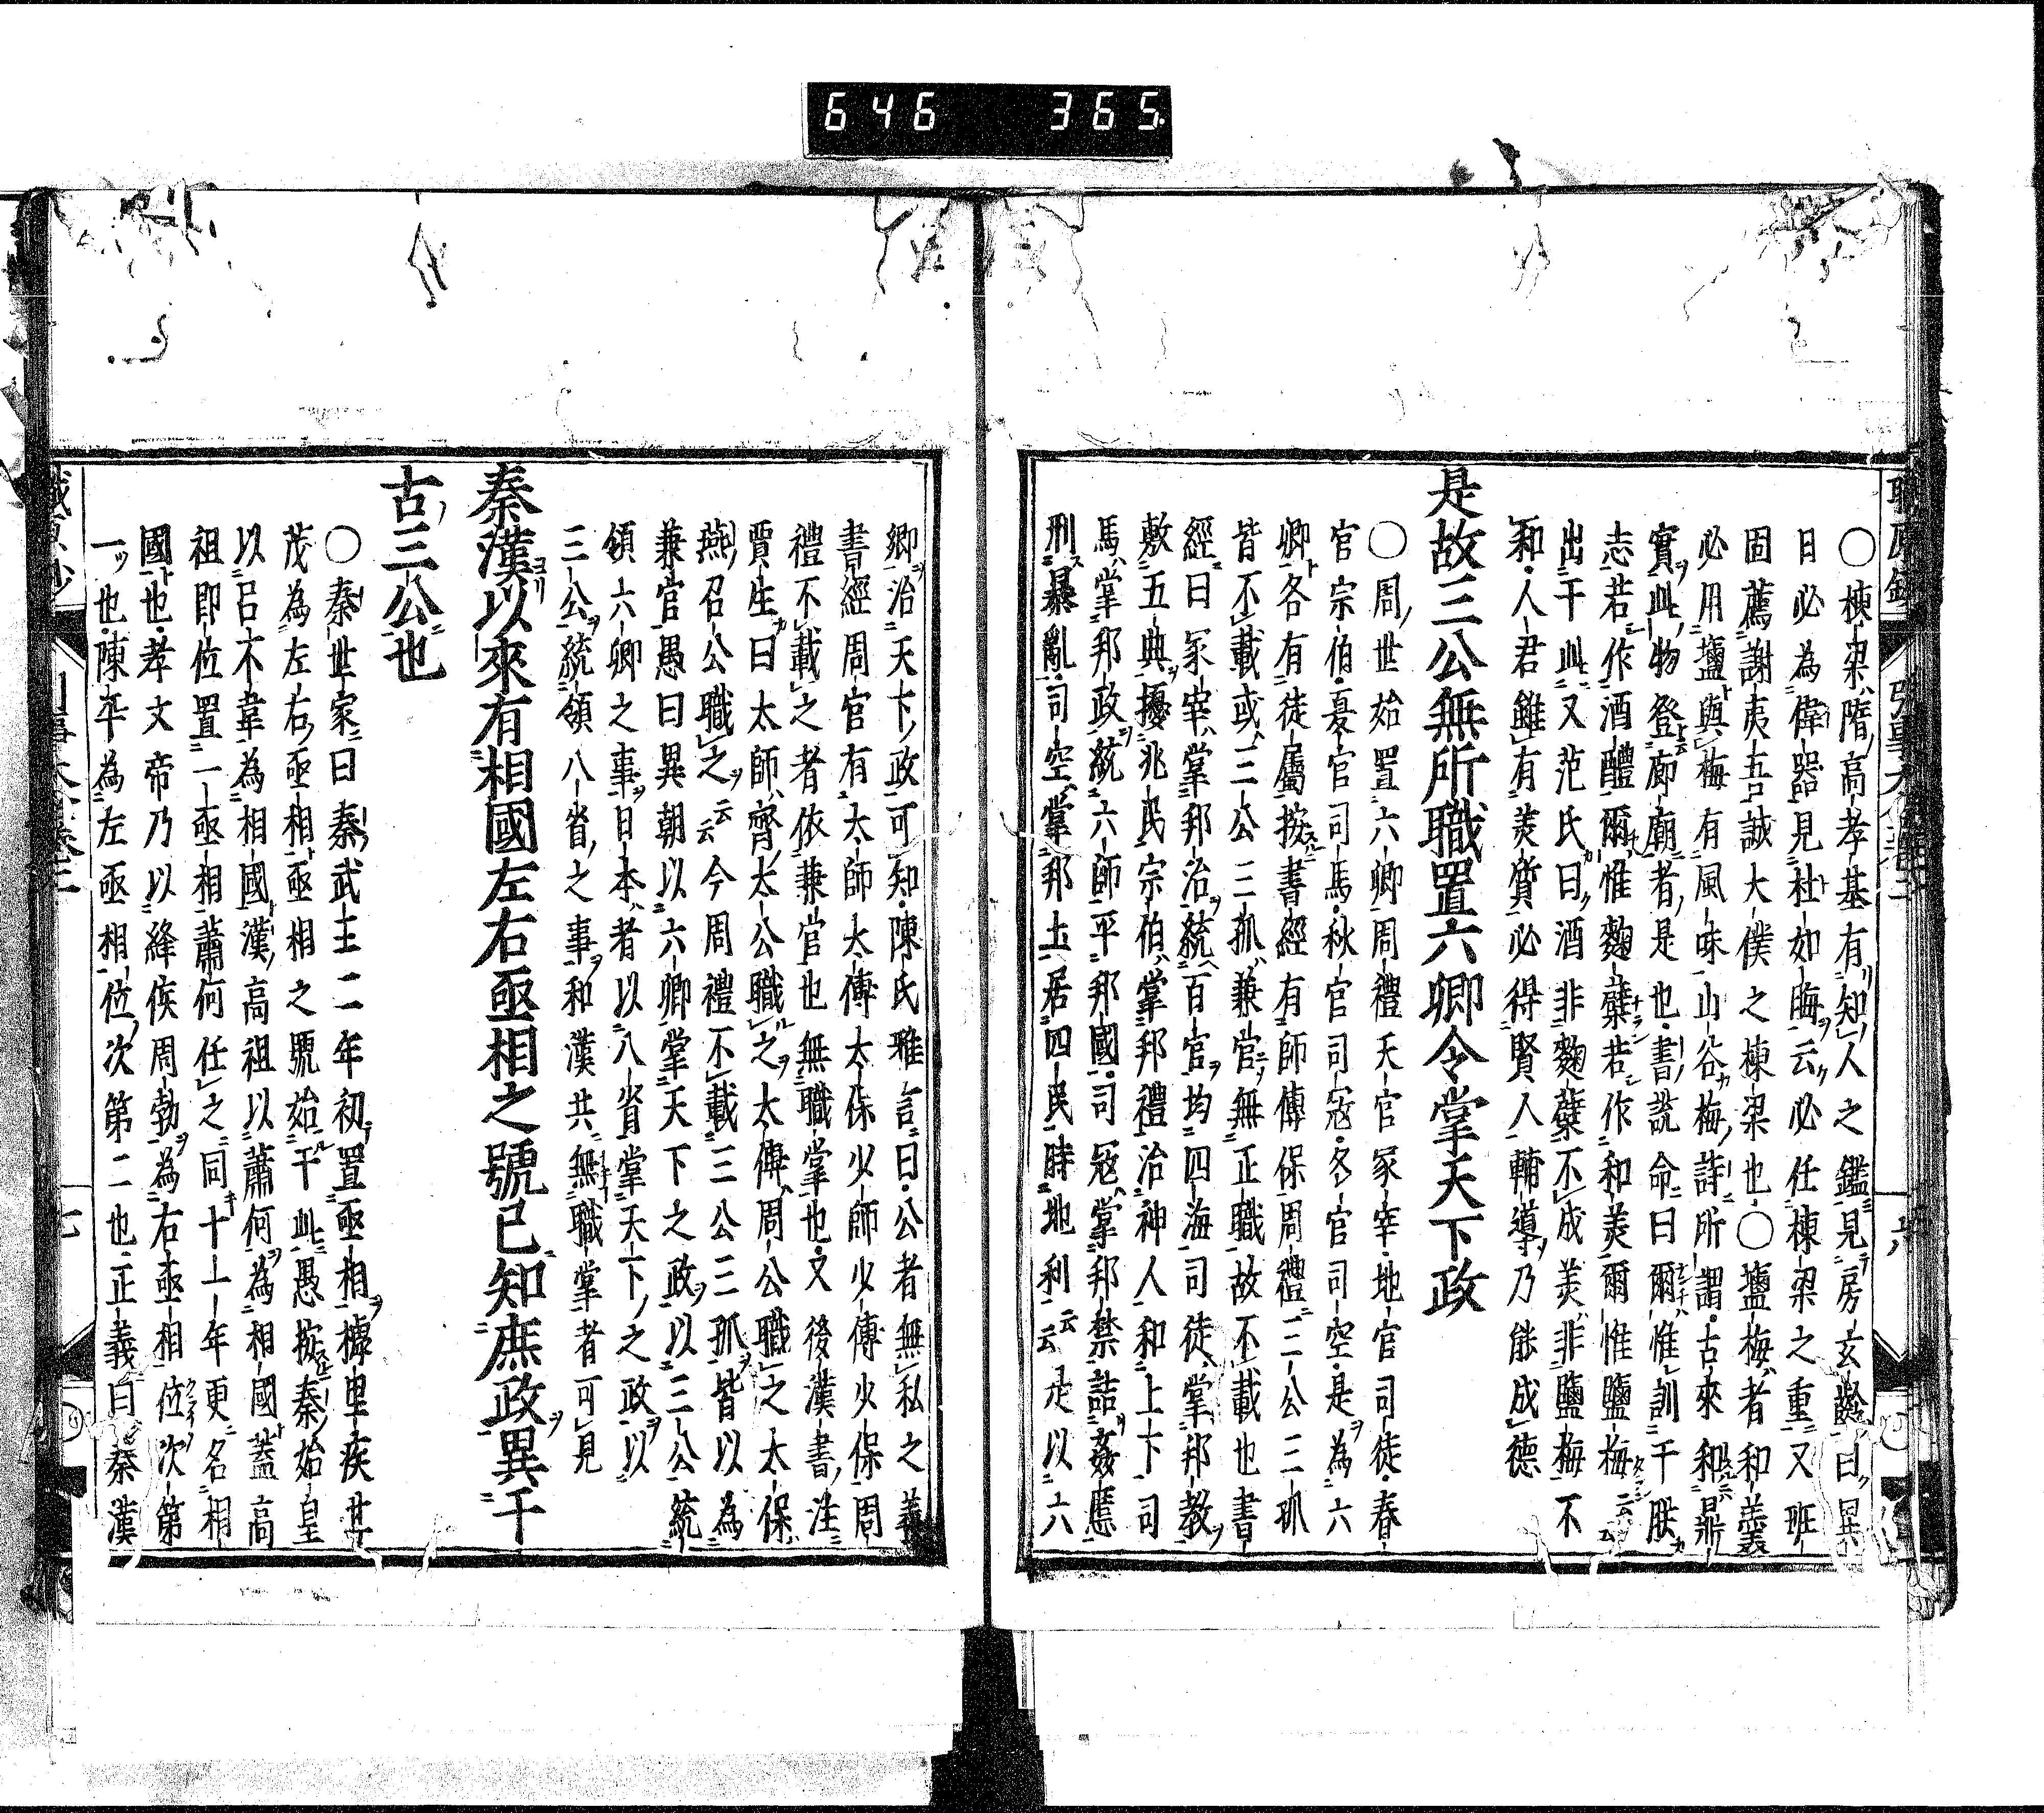 646 365
〇棟梁隋高孝基有知人之鑑見房玄齡曰異
日必為偉器見杜如晦云必任棟梁之重又班
固薦謝夷吾誠大僕之棟梁也〇鹽梅者和羹
必用鹽與梅有風味山谷梅詩所謂古來和鼎
實此物登廊廟者是也書說命曰爾惟訓于朕
志若作酒醴爾惟麴糵若作和羹爾惟鹽梅云云
出于此又范氏曰酒非麴糵不成羹非鹽梅不
和人君雖有美質必得賢人輔導乃能成德
是故三公無所職置六卿令掌天下政
〇周世始置六卿周禮天官冢宰地官司徒春
官宗伯夏官司馬秋官司寇冬官司空是為六
卿各有徒屬按書經有師傅保周禮三公三孤
皆不載或三公三孤兼官無正職故不載也書
經曰冢宰掌邦治統百官均四海司徒掌邦教
敷五典擾兆民宗伯掌邦禮治神人和上下司
馬掌邦政統六師平邦國司寇掌邦禁詰姦慝
刑暴亂司空掌邦土居四民時地利云云是以六
卿治天下政可知陳氏雅言曰公者無私之義
書經周官有太師太傅太保少師少傅少保周
禮不載之者依兼官也無職掌也又後漢書注
賈生曰太師齊太公職之太傅周公職之太保
燕召公職之云云今周禮不載三公三孤皆以為
兼官愚曰異朝以六卿掌天下之政以三公統
領六卿之事日本者以八省掌天下之政以
三公統領八省之事和漢共無職掌者可見
秦漢以來有相國左右丞相之號已知庶政異于
古三公也
〇秦世家曰秦武王二年初置丞相樗里疾甘
茂為左右丞相丞相之號始于此愚按秦始皇
以呂不韋為相國漢高祖以蕭何為相國蓋高
祖即位置一丞相蕭何任之同十一年更名相
國也孝文帝乃以絳侯周勃為右丞相位次第
一也陳平為左丞相位次第二也正義曰秦漢